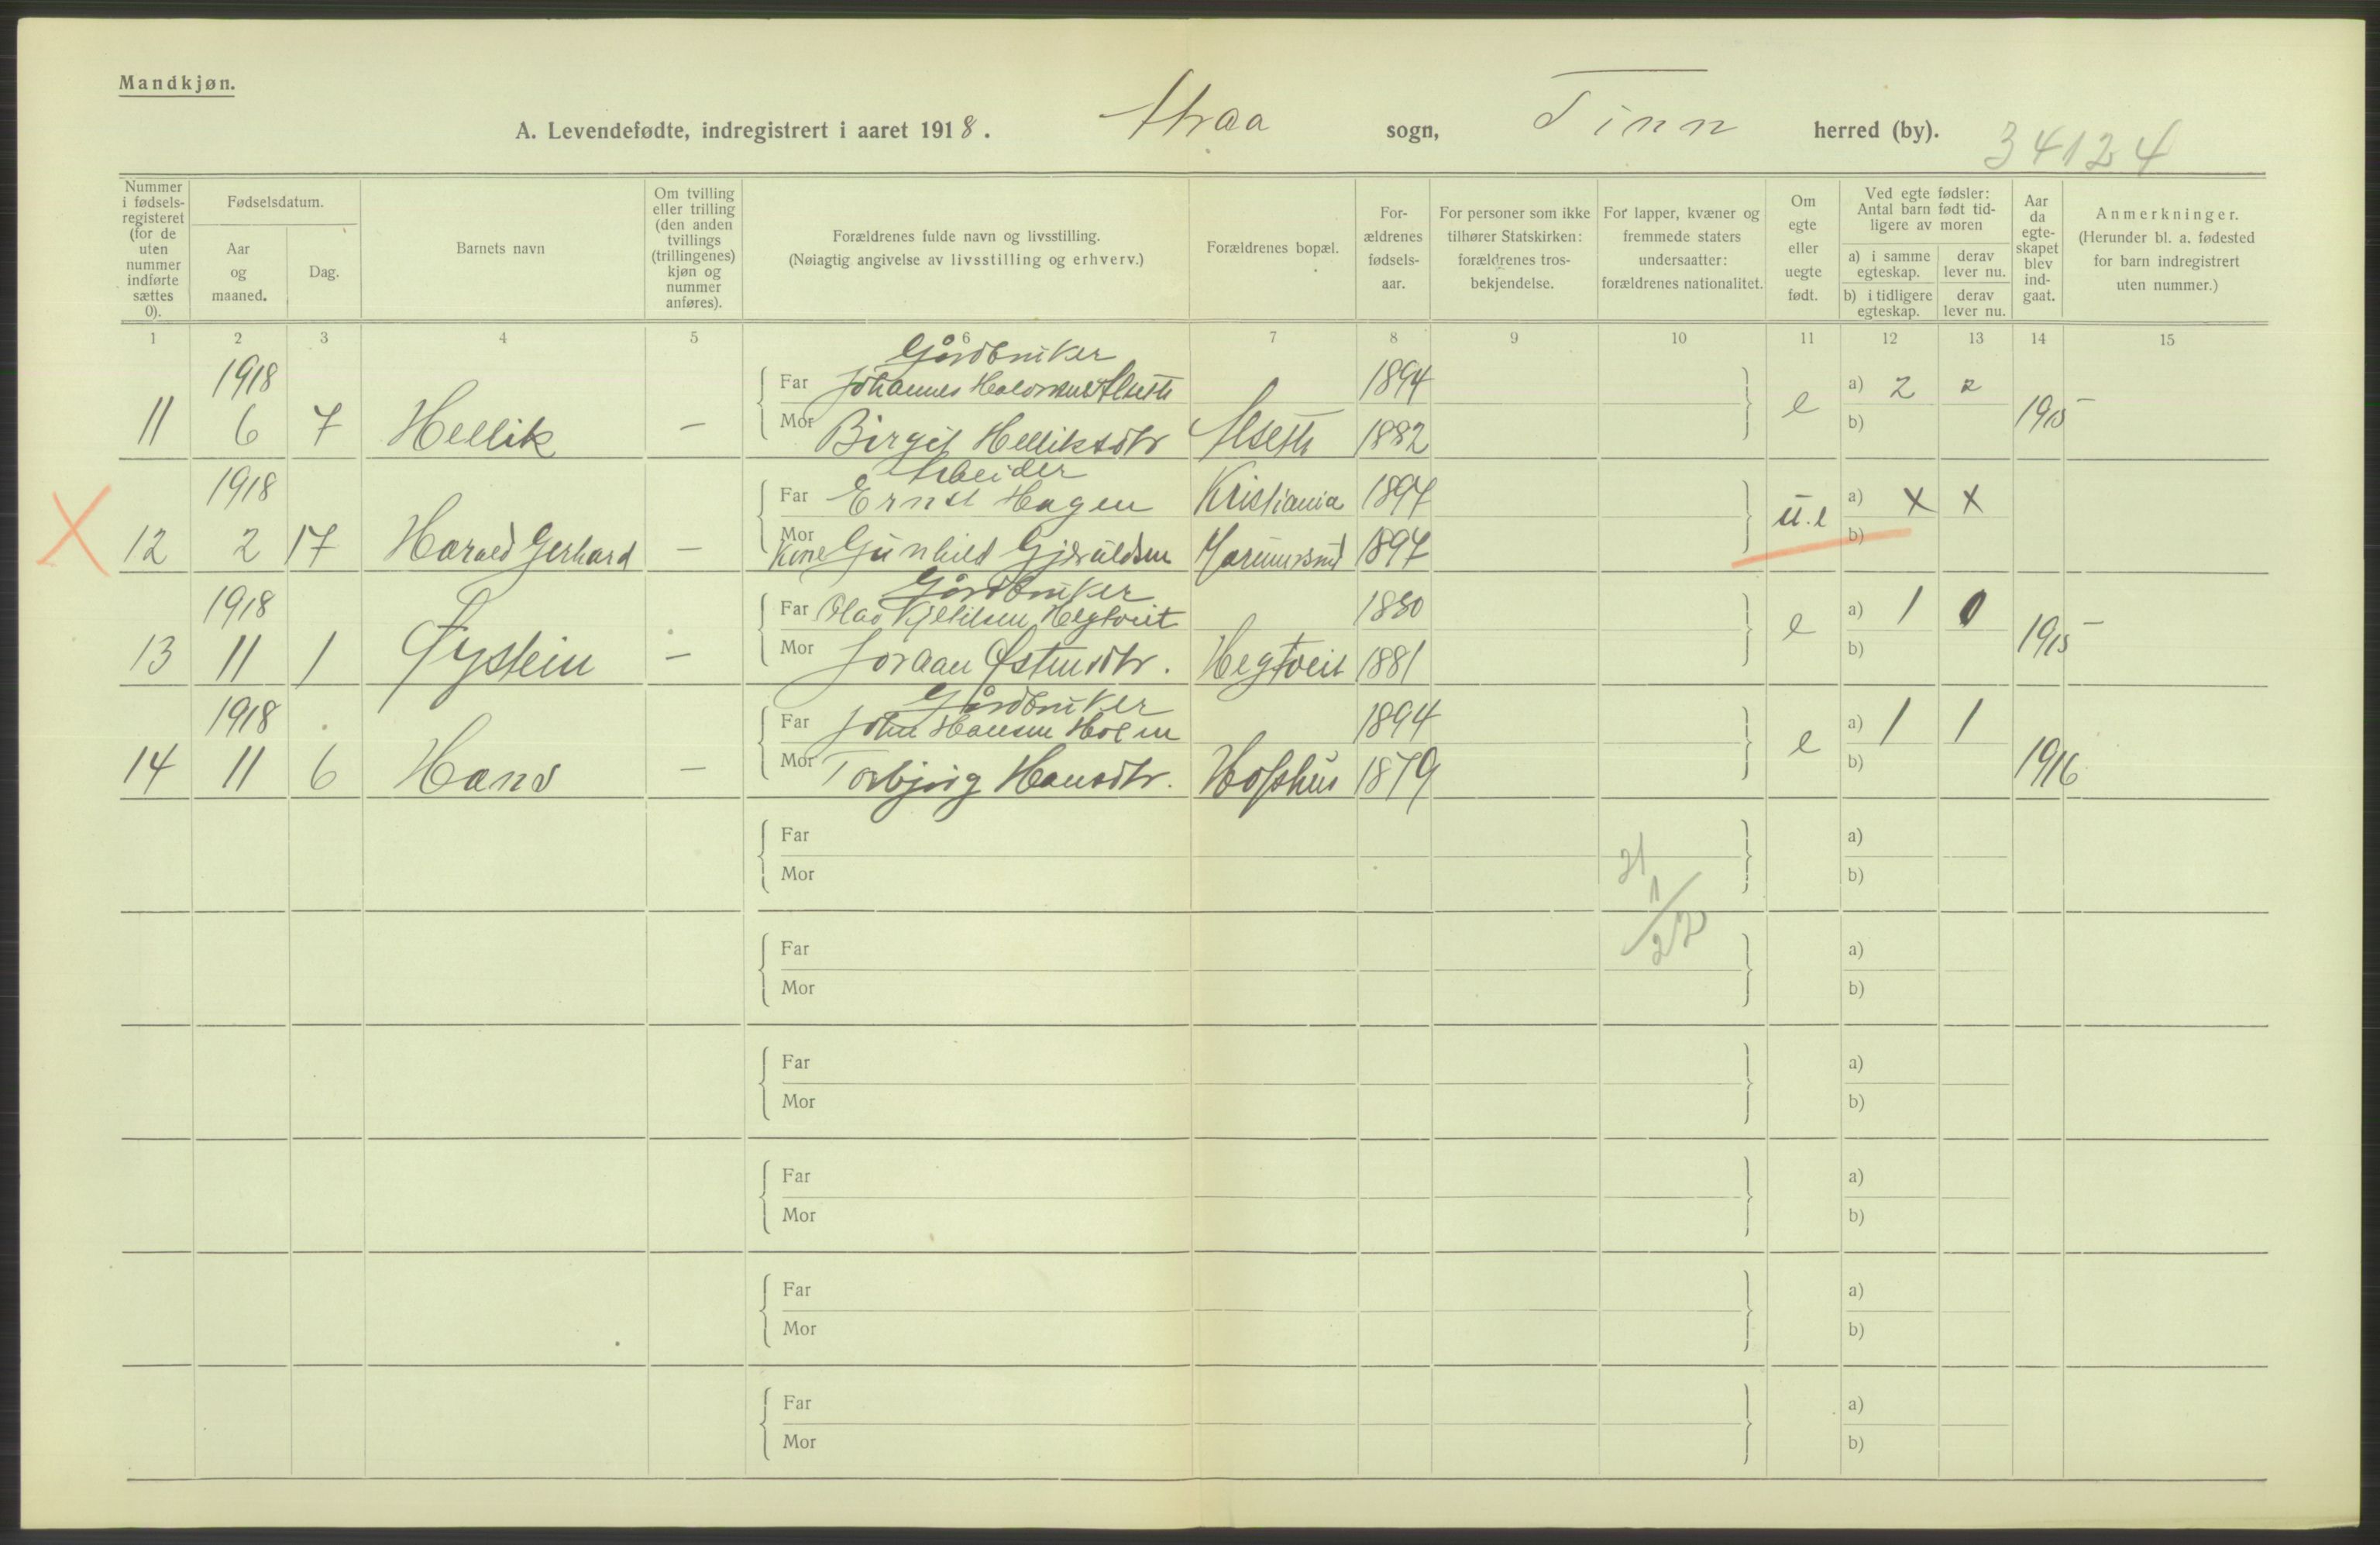 Mandkjøn.
A. Levendefødte, indregistrert i aaret 1918. Atraa sogn, Tinn herred (by).
34124
Nummer i fødsels-registeret (for de uten nummer indførte sættes 0).
Fødselsdatum.
Aar og maaned.
Dag.
Barnets navn
Om tvilling eller trilling (den anden tvillings (trillingenes) kjøn og nummer anføres).
Forældrenes fulde navn og livsstilling.
(Nøiagtig angivelse av livsstilling og erhverv.)
Forældrenes bopæl.
For-ældrenes fødsels-aar.
For personer som ikke tilhører Statskirken: forældrenes tros-bekjendelse.
For lapper, kvæner og fremmede staters undersaatter: forældrenes nationalitet.
Om egte eller uegte født.
Ved egte fødsler: Antal barn født tid-ligere av moren
a) i samme egteskap.
derav lever nu.
b) i tidligere egteskap.
derav lever nu.
Aar da egte-skapet blev ind-gaat.
Anmerkninger.
(Herunder bl. a. fødested for barn indregistrert uten nummer.)
1 2 3 4 5 6 7 8 9 10 11 12 13 14 15
Gårdbruker
1918 Far Johannes Alseth 1894 a) 2 2
11 6 7 Hellik – Mor Birgit Helliksdtr Alseth 1882 e b) 1915
Arbeider
1918 Far Ernst Hagen Kristiania 1897 a) x x
X 12 2 17 Harald Gerhard – Mor Gunhild Gjeruldsen 1897 u.e b)
Gårdbruker
1918 Far Olav Kjetilsen Hegtveit 1880 a) 1 0
13 11 1 Øystein – Mor Joraan Østensdtr. Hegtveit 1881 e b) 1915
Gårdbruker
1918 Far John Hansen Holm 1894 a) 1 1
14 11 6 Hans – Mor Torbjørg Hansdtr. Hofshus 1879 e b) 1916
Far a)
Mor b)
21
1
Far a)
Mor b)
Far a)
Mor b)
Far a)
Mor b)
Far a)
Mor b)
Far a)
Mor b)